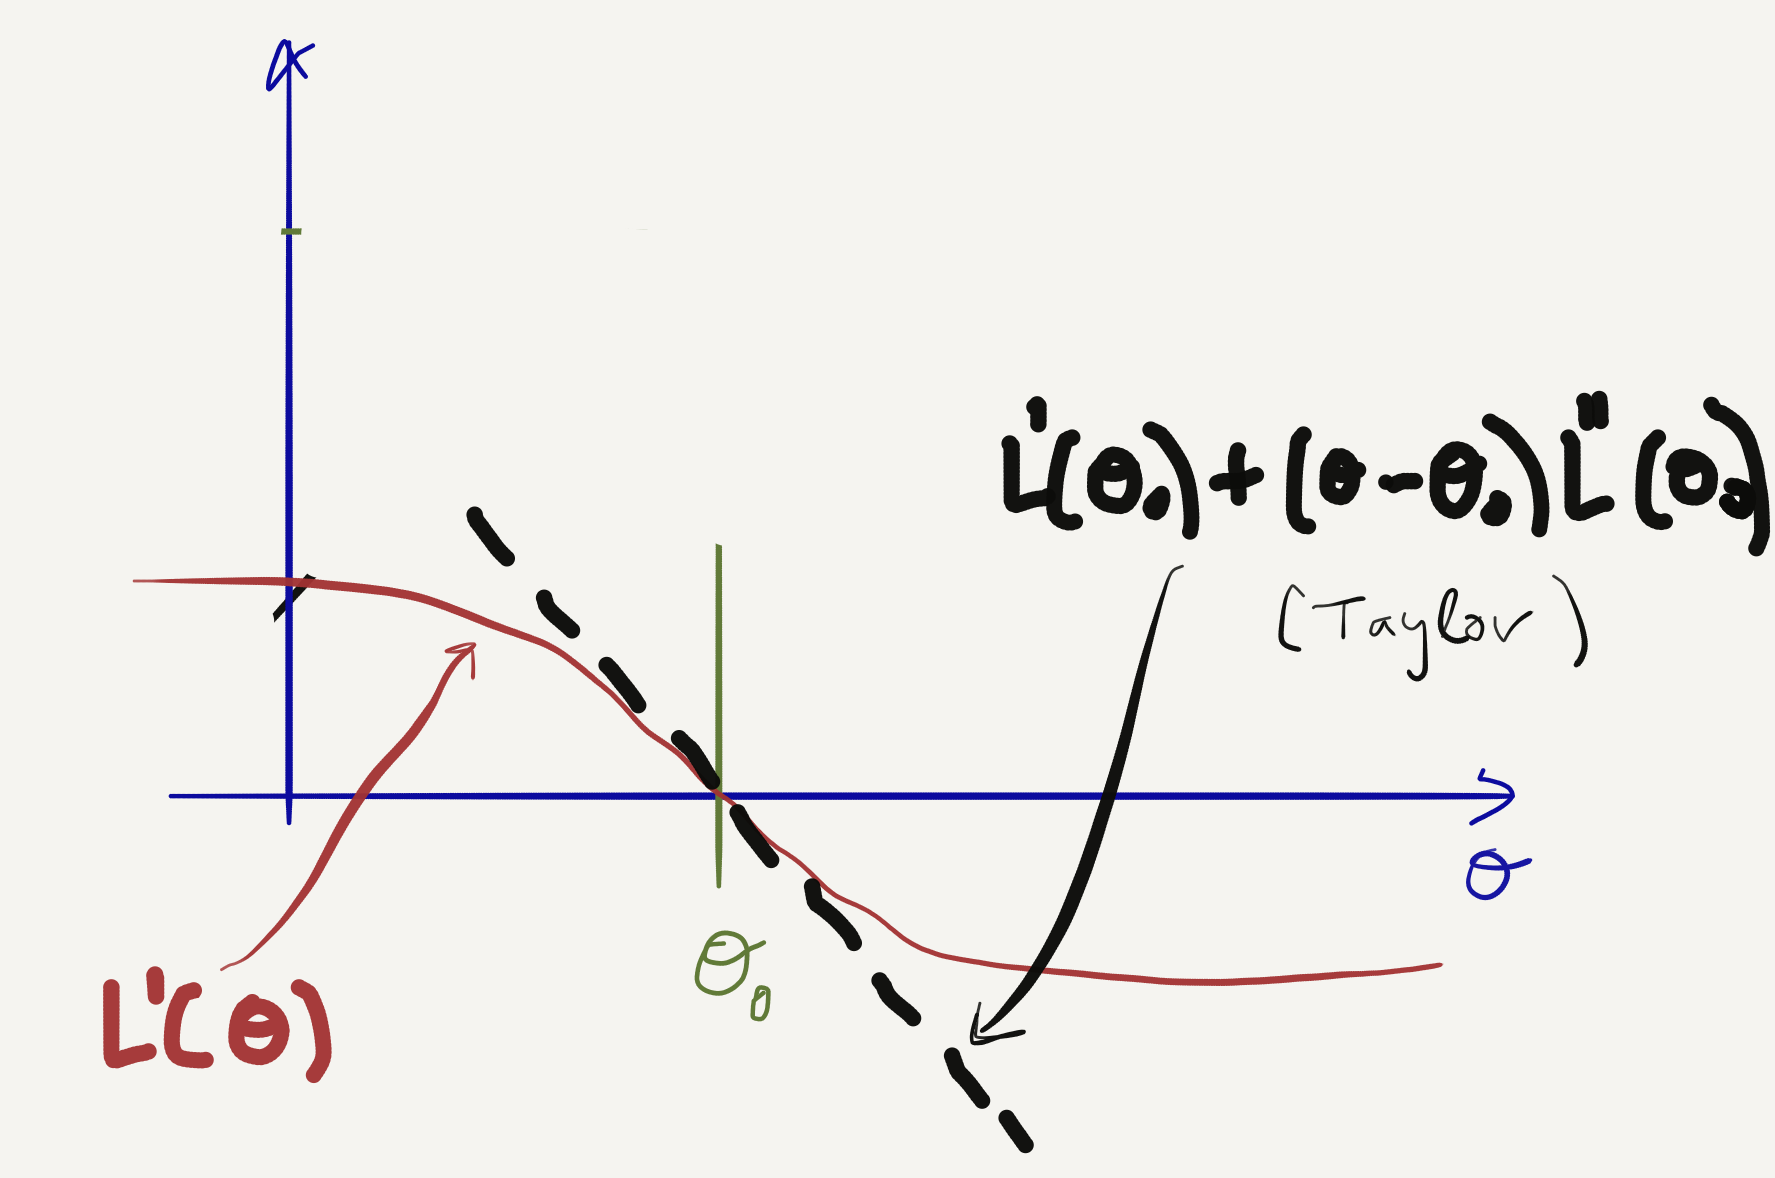 L'(θ₀) + (θ - θ₀) L''(θ₀)
(Taylor)
θ
θ₀
L'(θ)